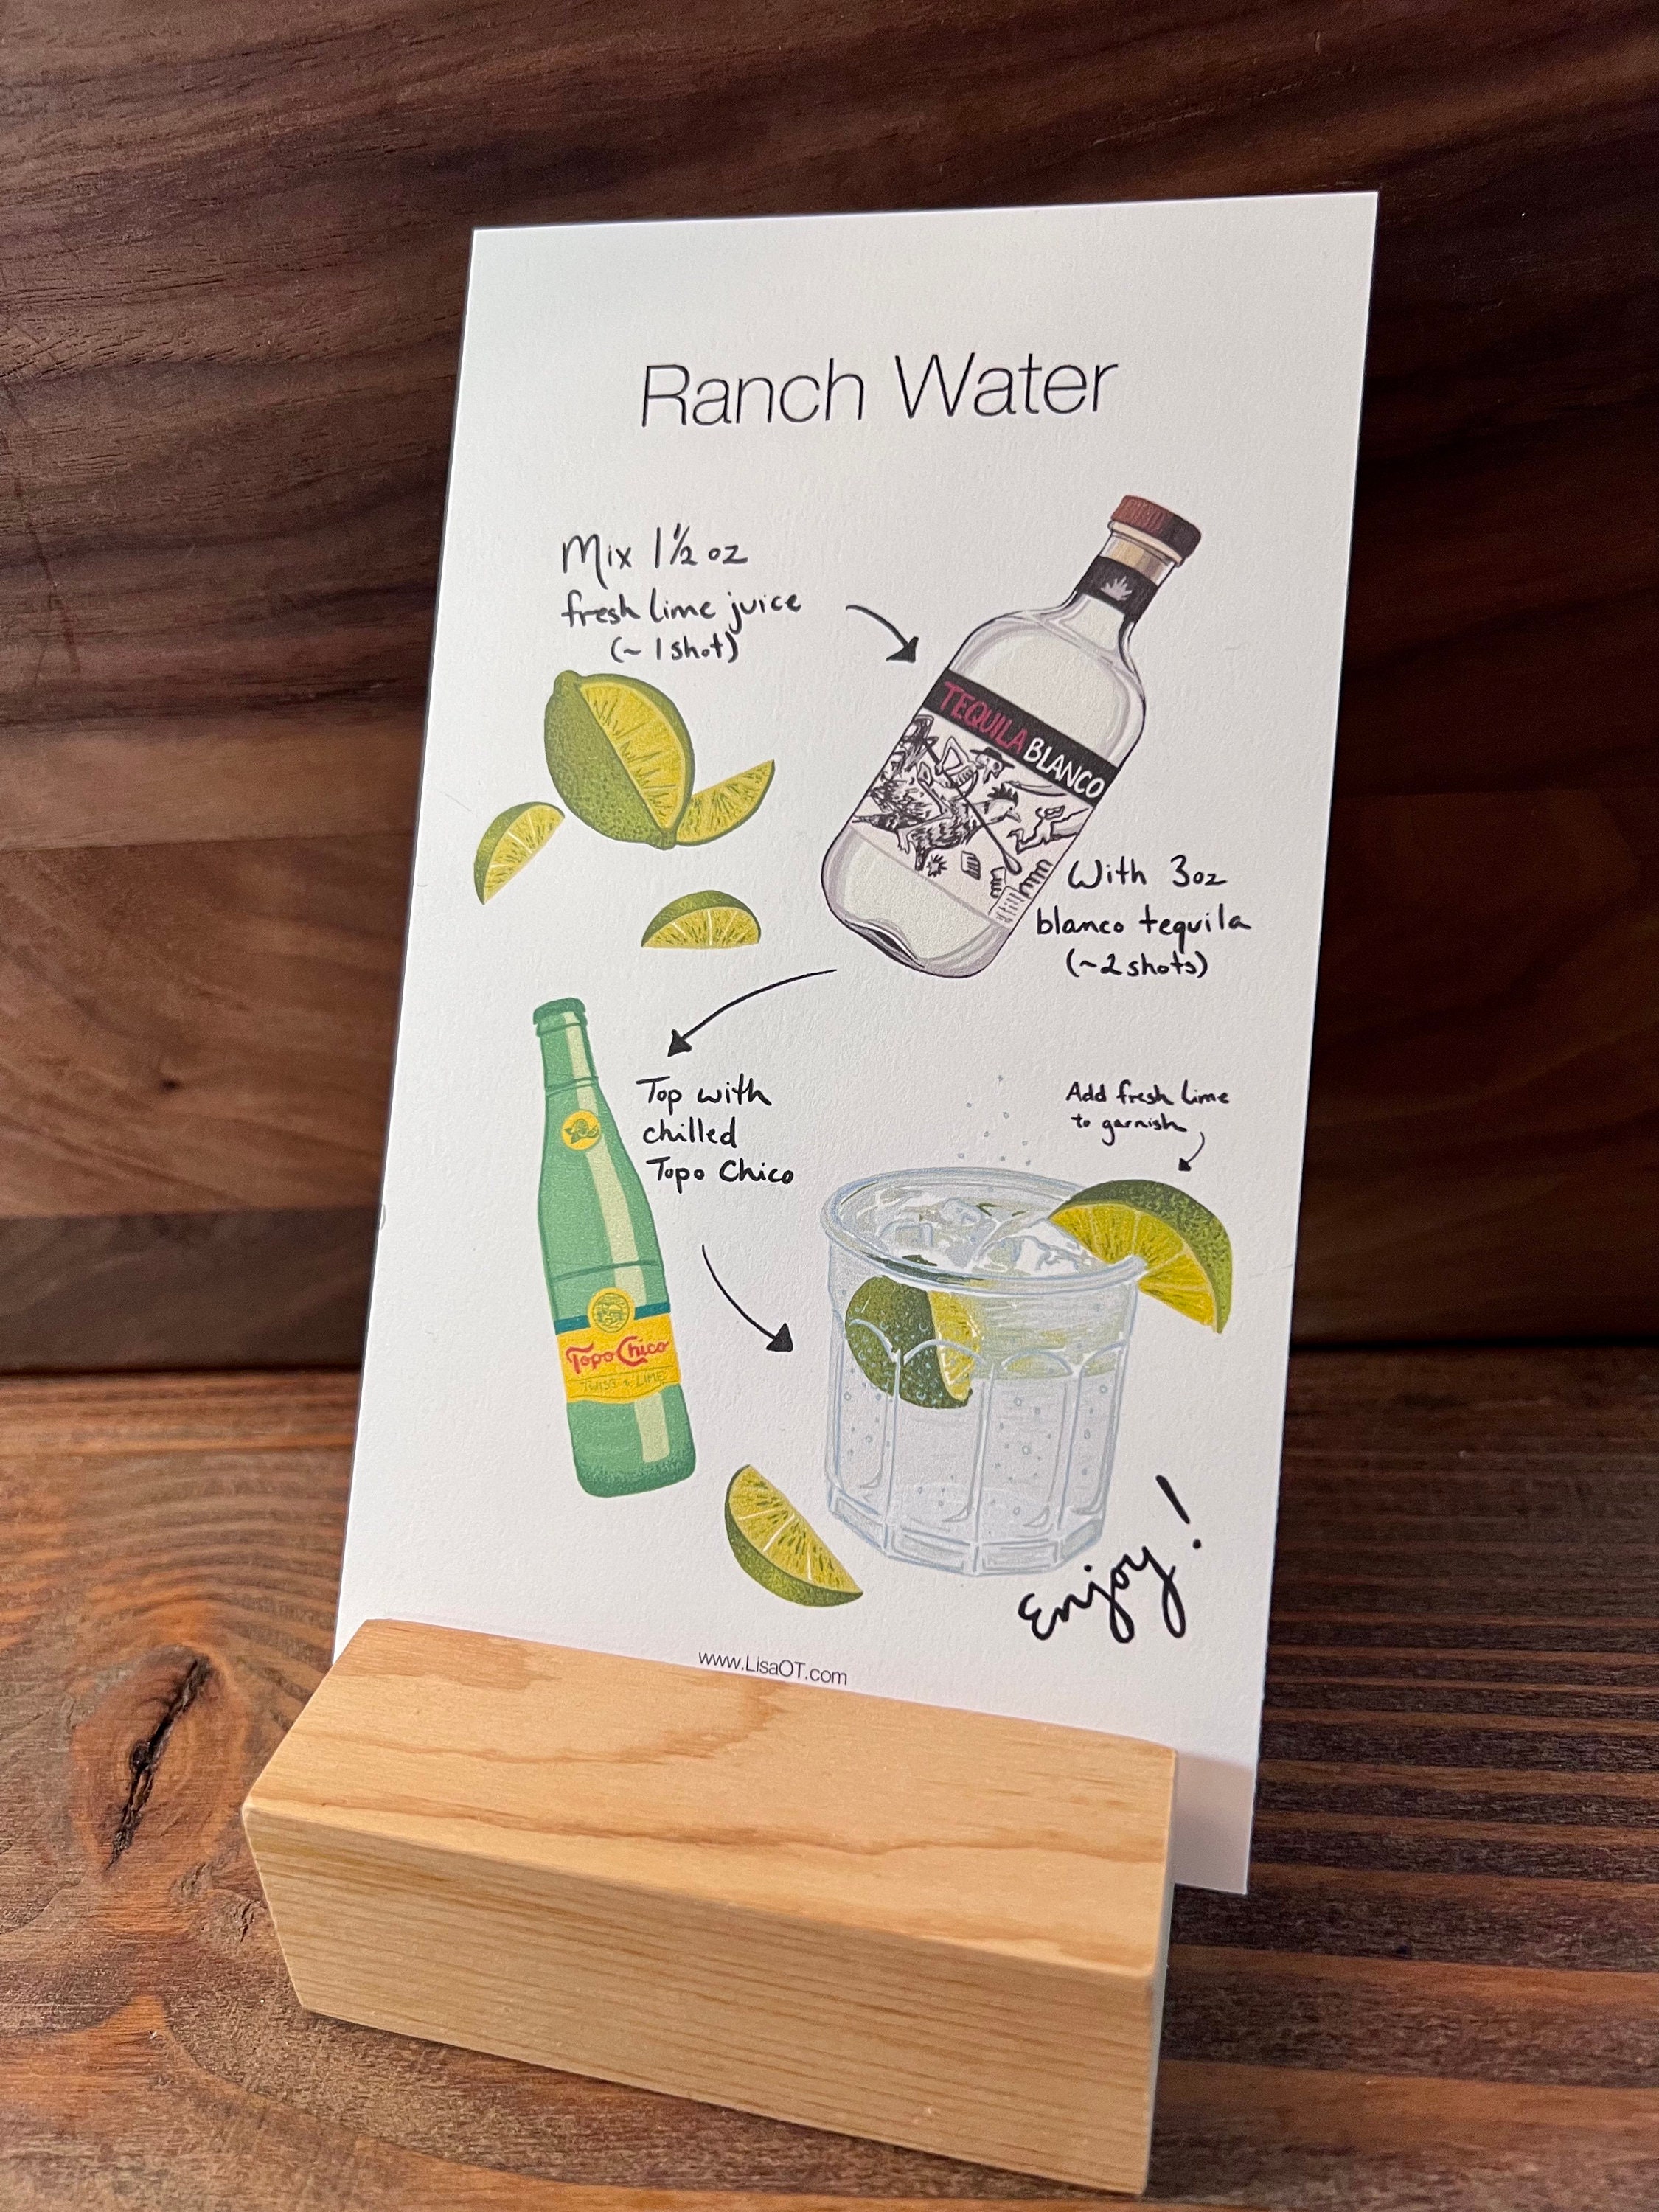 Ranch Water
Mix 1½ oz
fresh lime juice
(~ 1 shot)
TEQUILA BLANCO
With 3oz
blanco tequila
(~2 shots)
Top with
chilled
Topo Chico
Add fresh lime
to garnish
Topo Chico
TWIST & LIME
Enjoy!
www.LisaOT.com